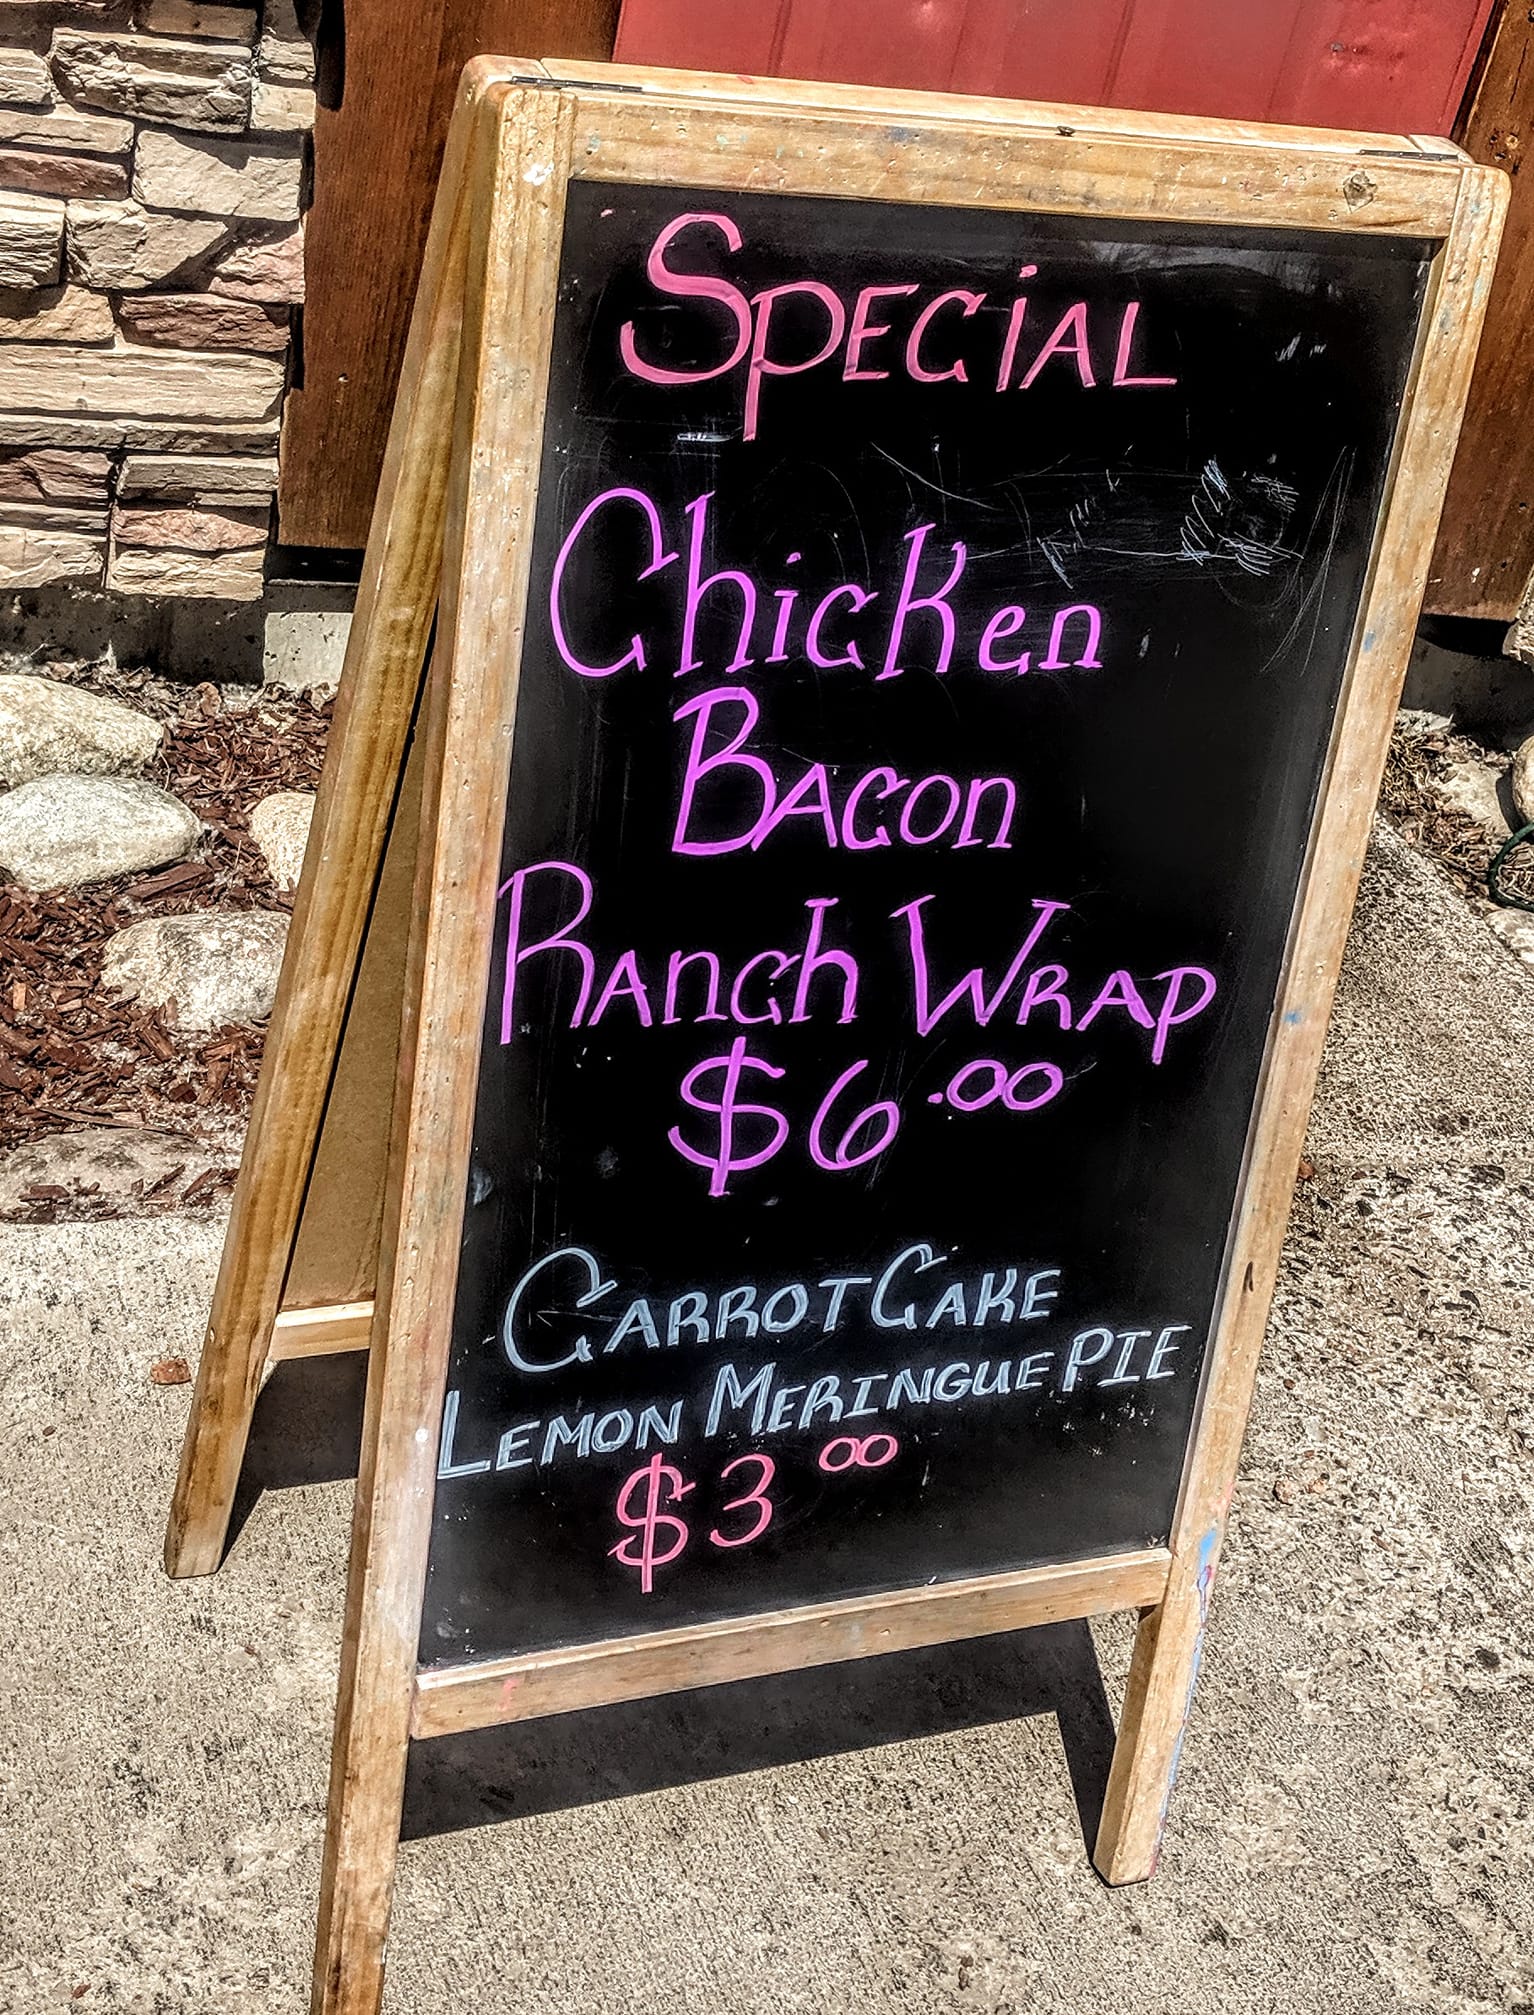 Special
Chicken
Bacon
Ranch Wrap
$6.00
Carrot Cake
Lemon Meringue Pie
$3 00